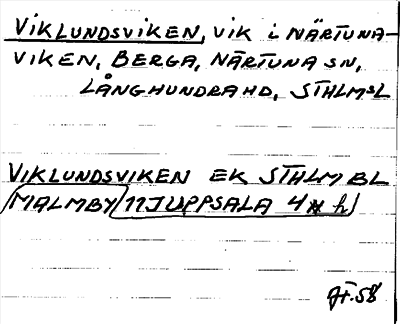 VIKLUNDSVIKEN, VIK I NÄRTUNA-
VIKEN, BERGA, NÄRTUNA SN,
LÅNGHUNDRA HD, STHLMSL
VIKLUNDSVIKEN EK STHLM BL
MALMBY 11J UPPSALA 4 h